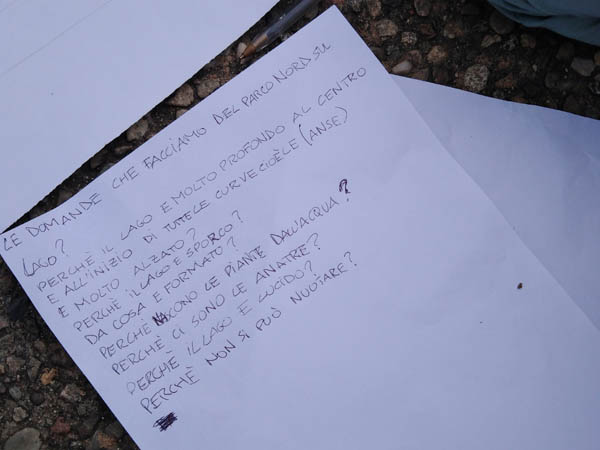 LE DOMANDE CHE FACCIAMO DEL PARCO NORD SUL
LAGO?
PERCHÈ IL LAGO E MOLTO PROFONDO AL CENTRO
E ALL'INIZIO DI TUTTE LE CURVE CIOÈ LE (ANSE)
E MOLTO ALZATO?
PERCHÈ IL LAGO E SPORCO?
DA COSA E FORMATO?
PERCHÈ NASCONO LE PIANTE DALL'ACQUA?
PERCHÈ CI SONO LE ANATRE?
PERCHÈ IL LAGO E LUCIDO?
PERCHÈ NON SI PUÒ NUOTARE?